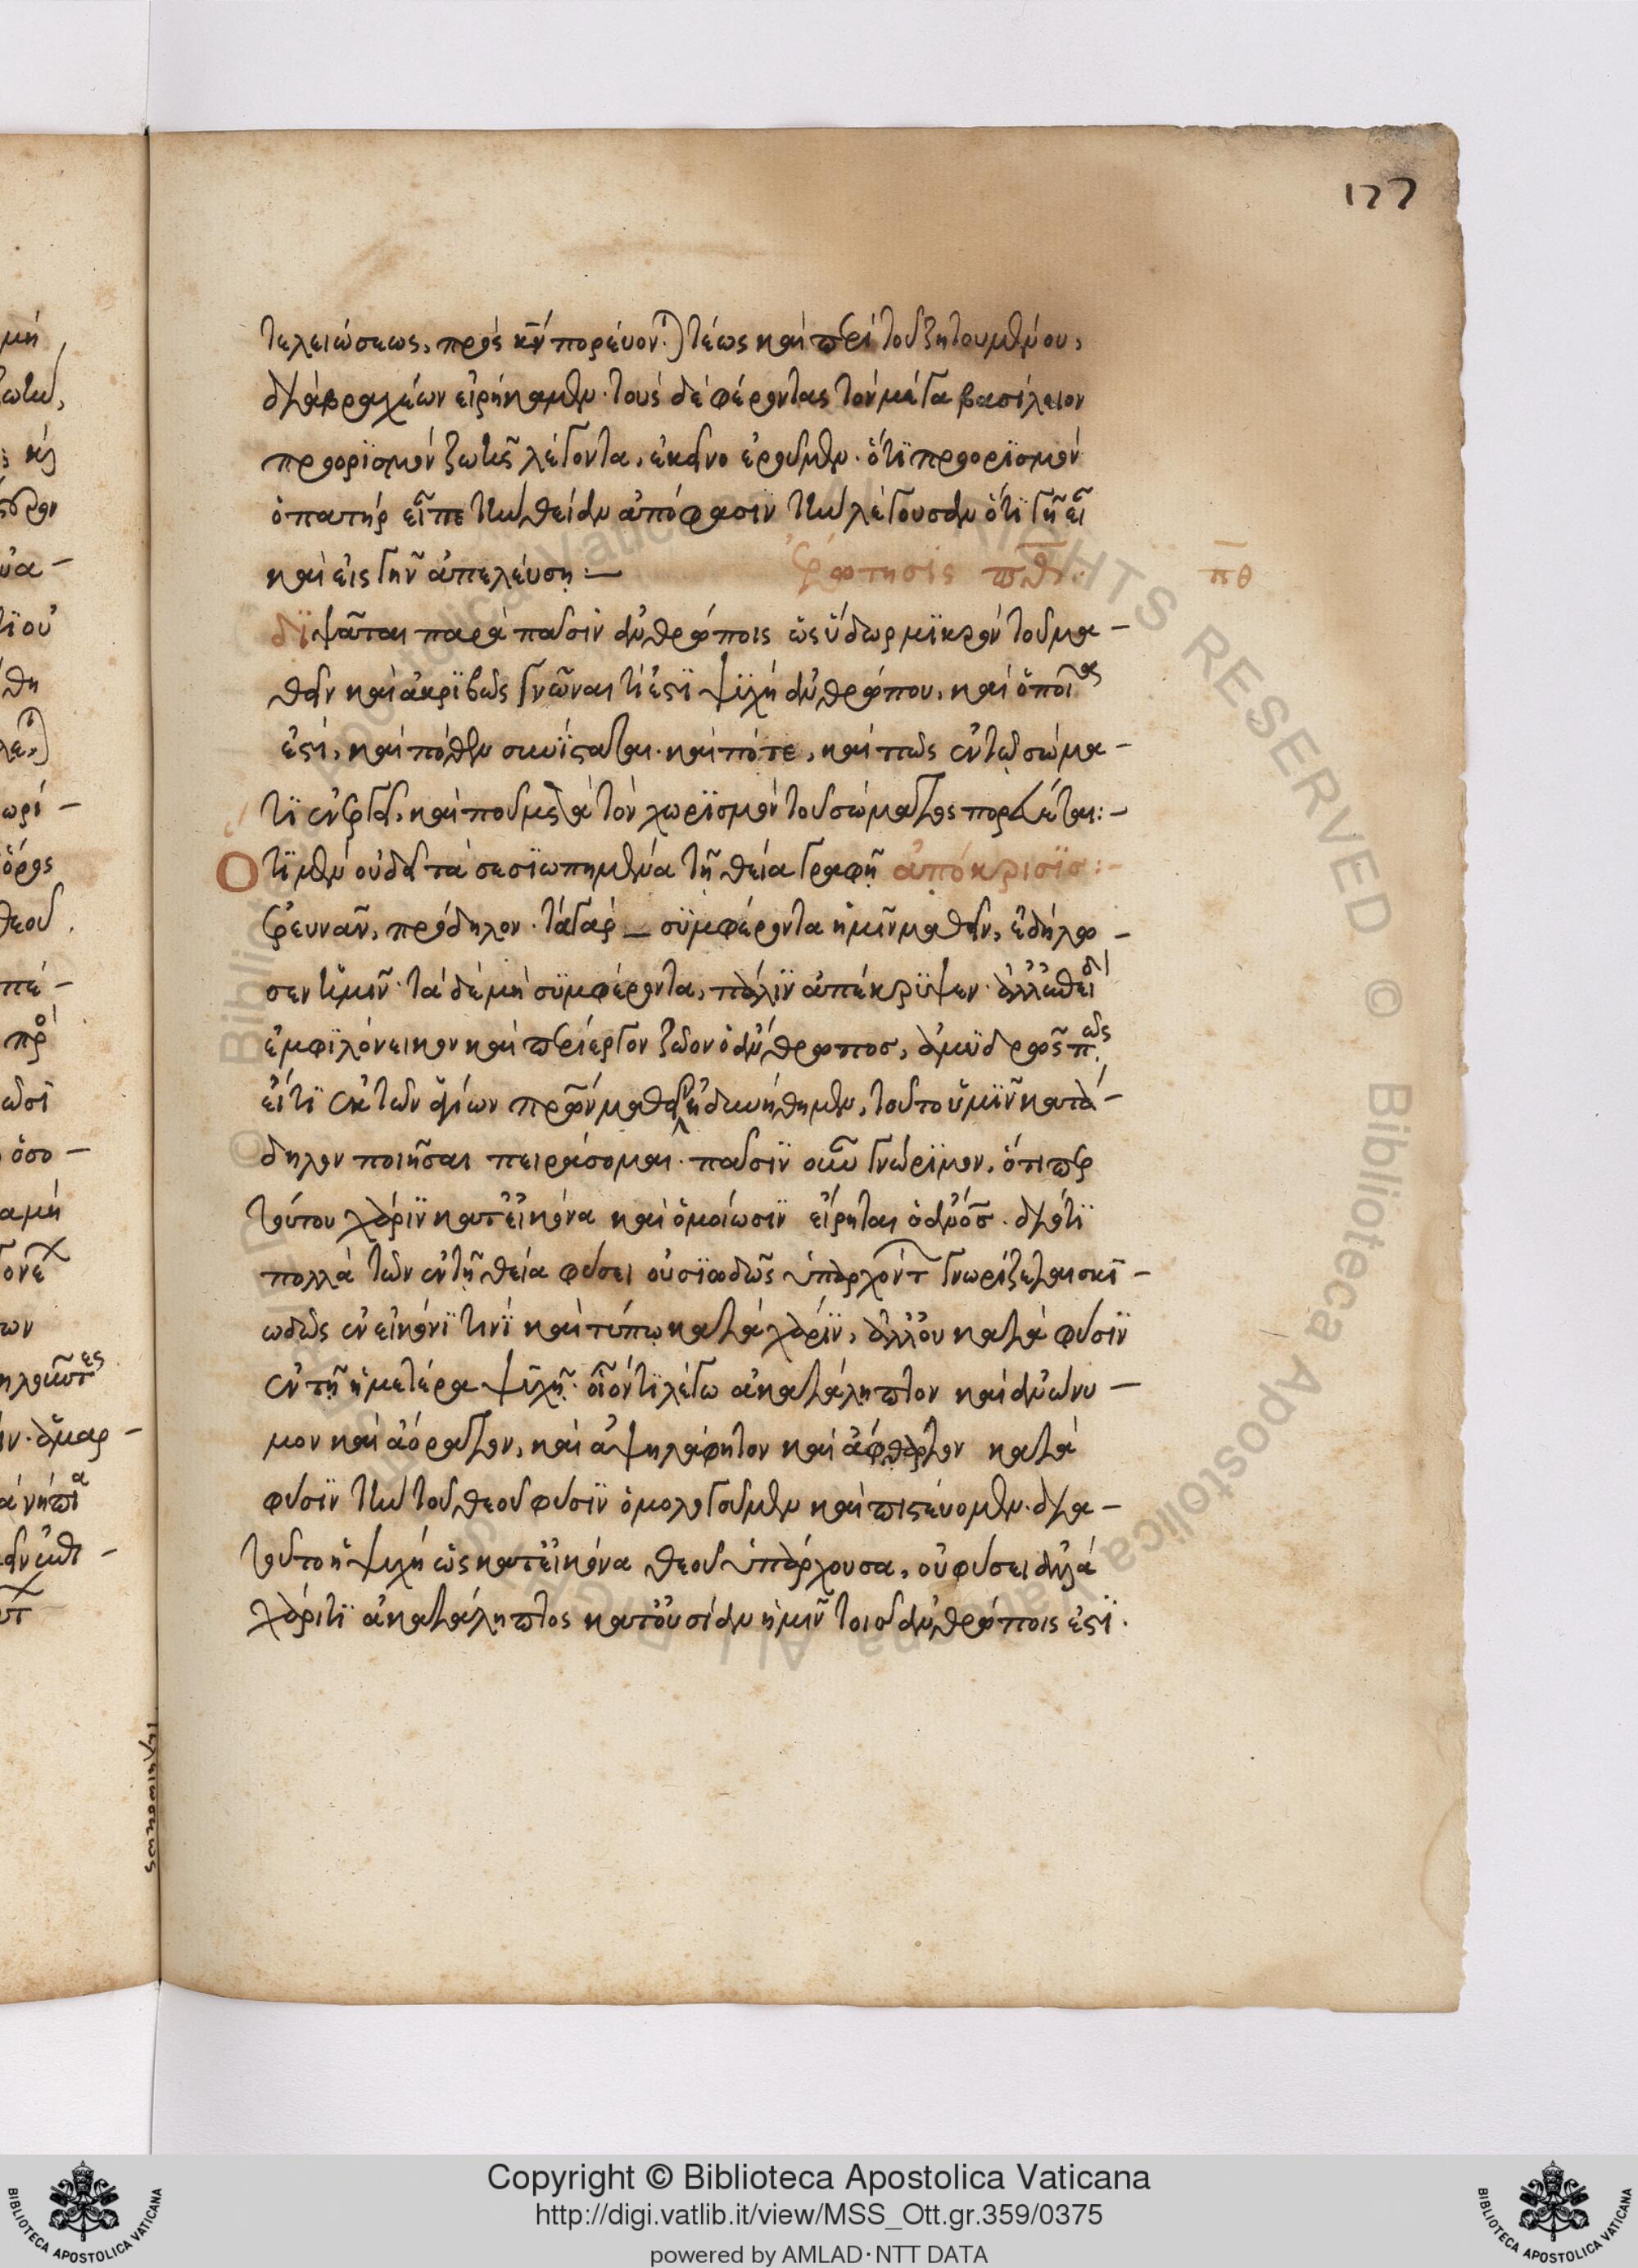 177
τελειώσεως, πρὸς ἣν πορεύον(ται) τέως καὶ περὶ τοῦ ζητουμένου,
διὰ βραχέων εἰρήκαμεν· τοὺς δὲ φέροντας τὸν μέγα βασίλειον
προορϊσμὸν ζωῆς λέγοντα, ἐκεῖνο ἐροῦμεν· ὅτϊ προορϊσμὸν
ὁ πατὴρ εἶπε τὴν θείαν ἀπόφασϊν τὴν λέγουσαν ὅτϊ γῆ εἶ
καὶ εἰς γῆν ἀπελεύση:—
ἐρώτησις πθ:
πθ
δϊψᾶται παρὰ πᾶσϊν ἀνθρώποις ὡς ὕδωρ μϊκρὸν τοῦ μα–
θεῖν καὶ ἀκρϊβῶς γνῶναι τί ἐστϊ ψϋχὴ ἀνθρώπου, καὶ ὁποίας
ἐστί, καὶ πόθεν συνίσταται· καὶ πότε, καὶ πῶς ἐν τῷ σώμα–
τϊ εὑρέθη, καὶ ποῦ μετὰ τὸν χωρϊσμὸν τοῦ σώματος πορεύεται:–
Ὅτϊ μὲν οὐ δεῖ τὰ σεσϊωπημένα τῆ θεία γραφῆ ἀπόκρισϊς:–
ἐρευνᾶν, πρόδηλον· τὰ γὰρ — σϋμφέροντα ἡμῖν μαθεῖν, ἐδήλω–
σεν ἡμῖν· τὰ δὲ μὴ σϋμφέροντα, πάλϊν ἀπέκρϋψεν· ἀλλ' ἐπειδὴ
ἐμφϊλόνεικον καὶ περίεργον ζῶον ὁ ἄνθρωπος, ἀμυδρῶς πως
εἴ τϊ ἐκ τῶν ἁγίων πρῶν μαθεῖν ἠδυνήθημεν, τοῦτο ὑμῖν κατά–
δηλον ποιῆσαι πειράσομαι· πᾶσϊν οὖν γνώρϊμον, ὅτιπερ
τούτου χάρϊν κατ' εἰκόνα καὶ ὁμοίωσϊν εἴρηται ὁ ἄνος· διότϊ
πολλὰ τῶν ἐν τῆ θεία φύσει οὐσϊωδῶς ὑπαρχόντ γνωρίζεται σκϊ–
ωδῶς ἐν εἰκόνϊ τινϊ καὶ τύπω κατὰ χάρϊν, ἀλλ' οὐ κατὰ φύσϊν
ἐν τῆ ἡμετέρα ψϋχῆ· οἷόν τϊ λέγω ἀκατάληπτον καὶ ἀνώνυ–
μον καὶ ἀόρατον, καὶ ἀψηλάφητον καὶ ἄφθαρτον κατὰ
φύσϊν τὴν τοῦ θεοῦ φύσϊν ὁμολογοῦμεν καὶ πιστεύομεν· δϊα–
τοῦτο ἡ ψυχὴ ὡς κατ' εἰκόνα θεοῦ ὑπάρχουσα, οὐ φύσει ἀλλὰ
χάριτϊ ἀκατάληπτος κατ' οὐσίαν ἡμῖν τοῖς ἀνθρώποις ἐστϊ·
Copyright © Biblioteca Apostolica Vaticana
http://digi.vatlib.it/view/MSS_Ott.gr.359/0375
powered by AMLAD·NTT DATA
BIBLIOTECA APOSTOLICA VATICANA
BIBLIOTECA APOSTOLICA VATICANA